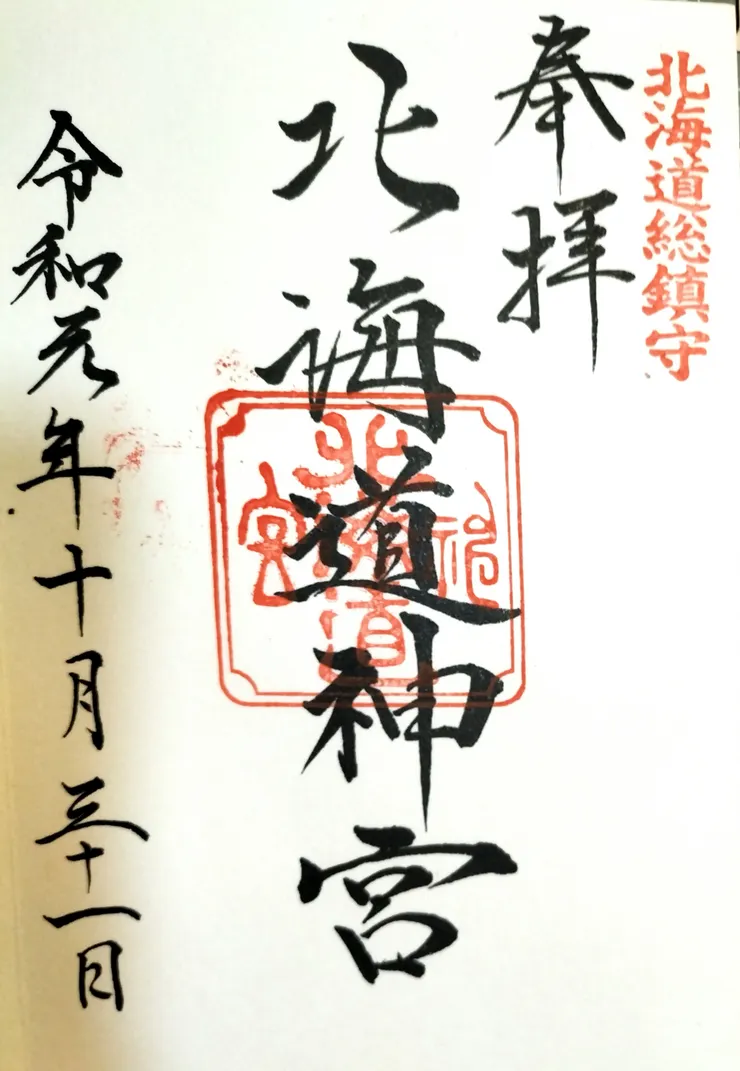 北海道総鎮守
奉拝
北海道神宮
北海道神宮
令和元年十月三十一日